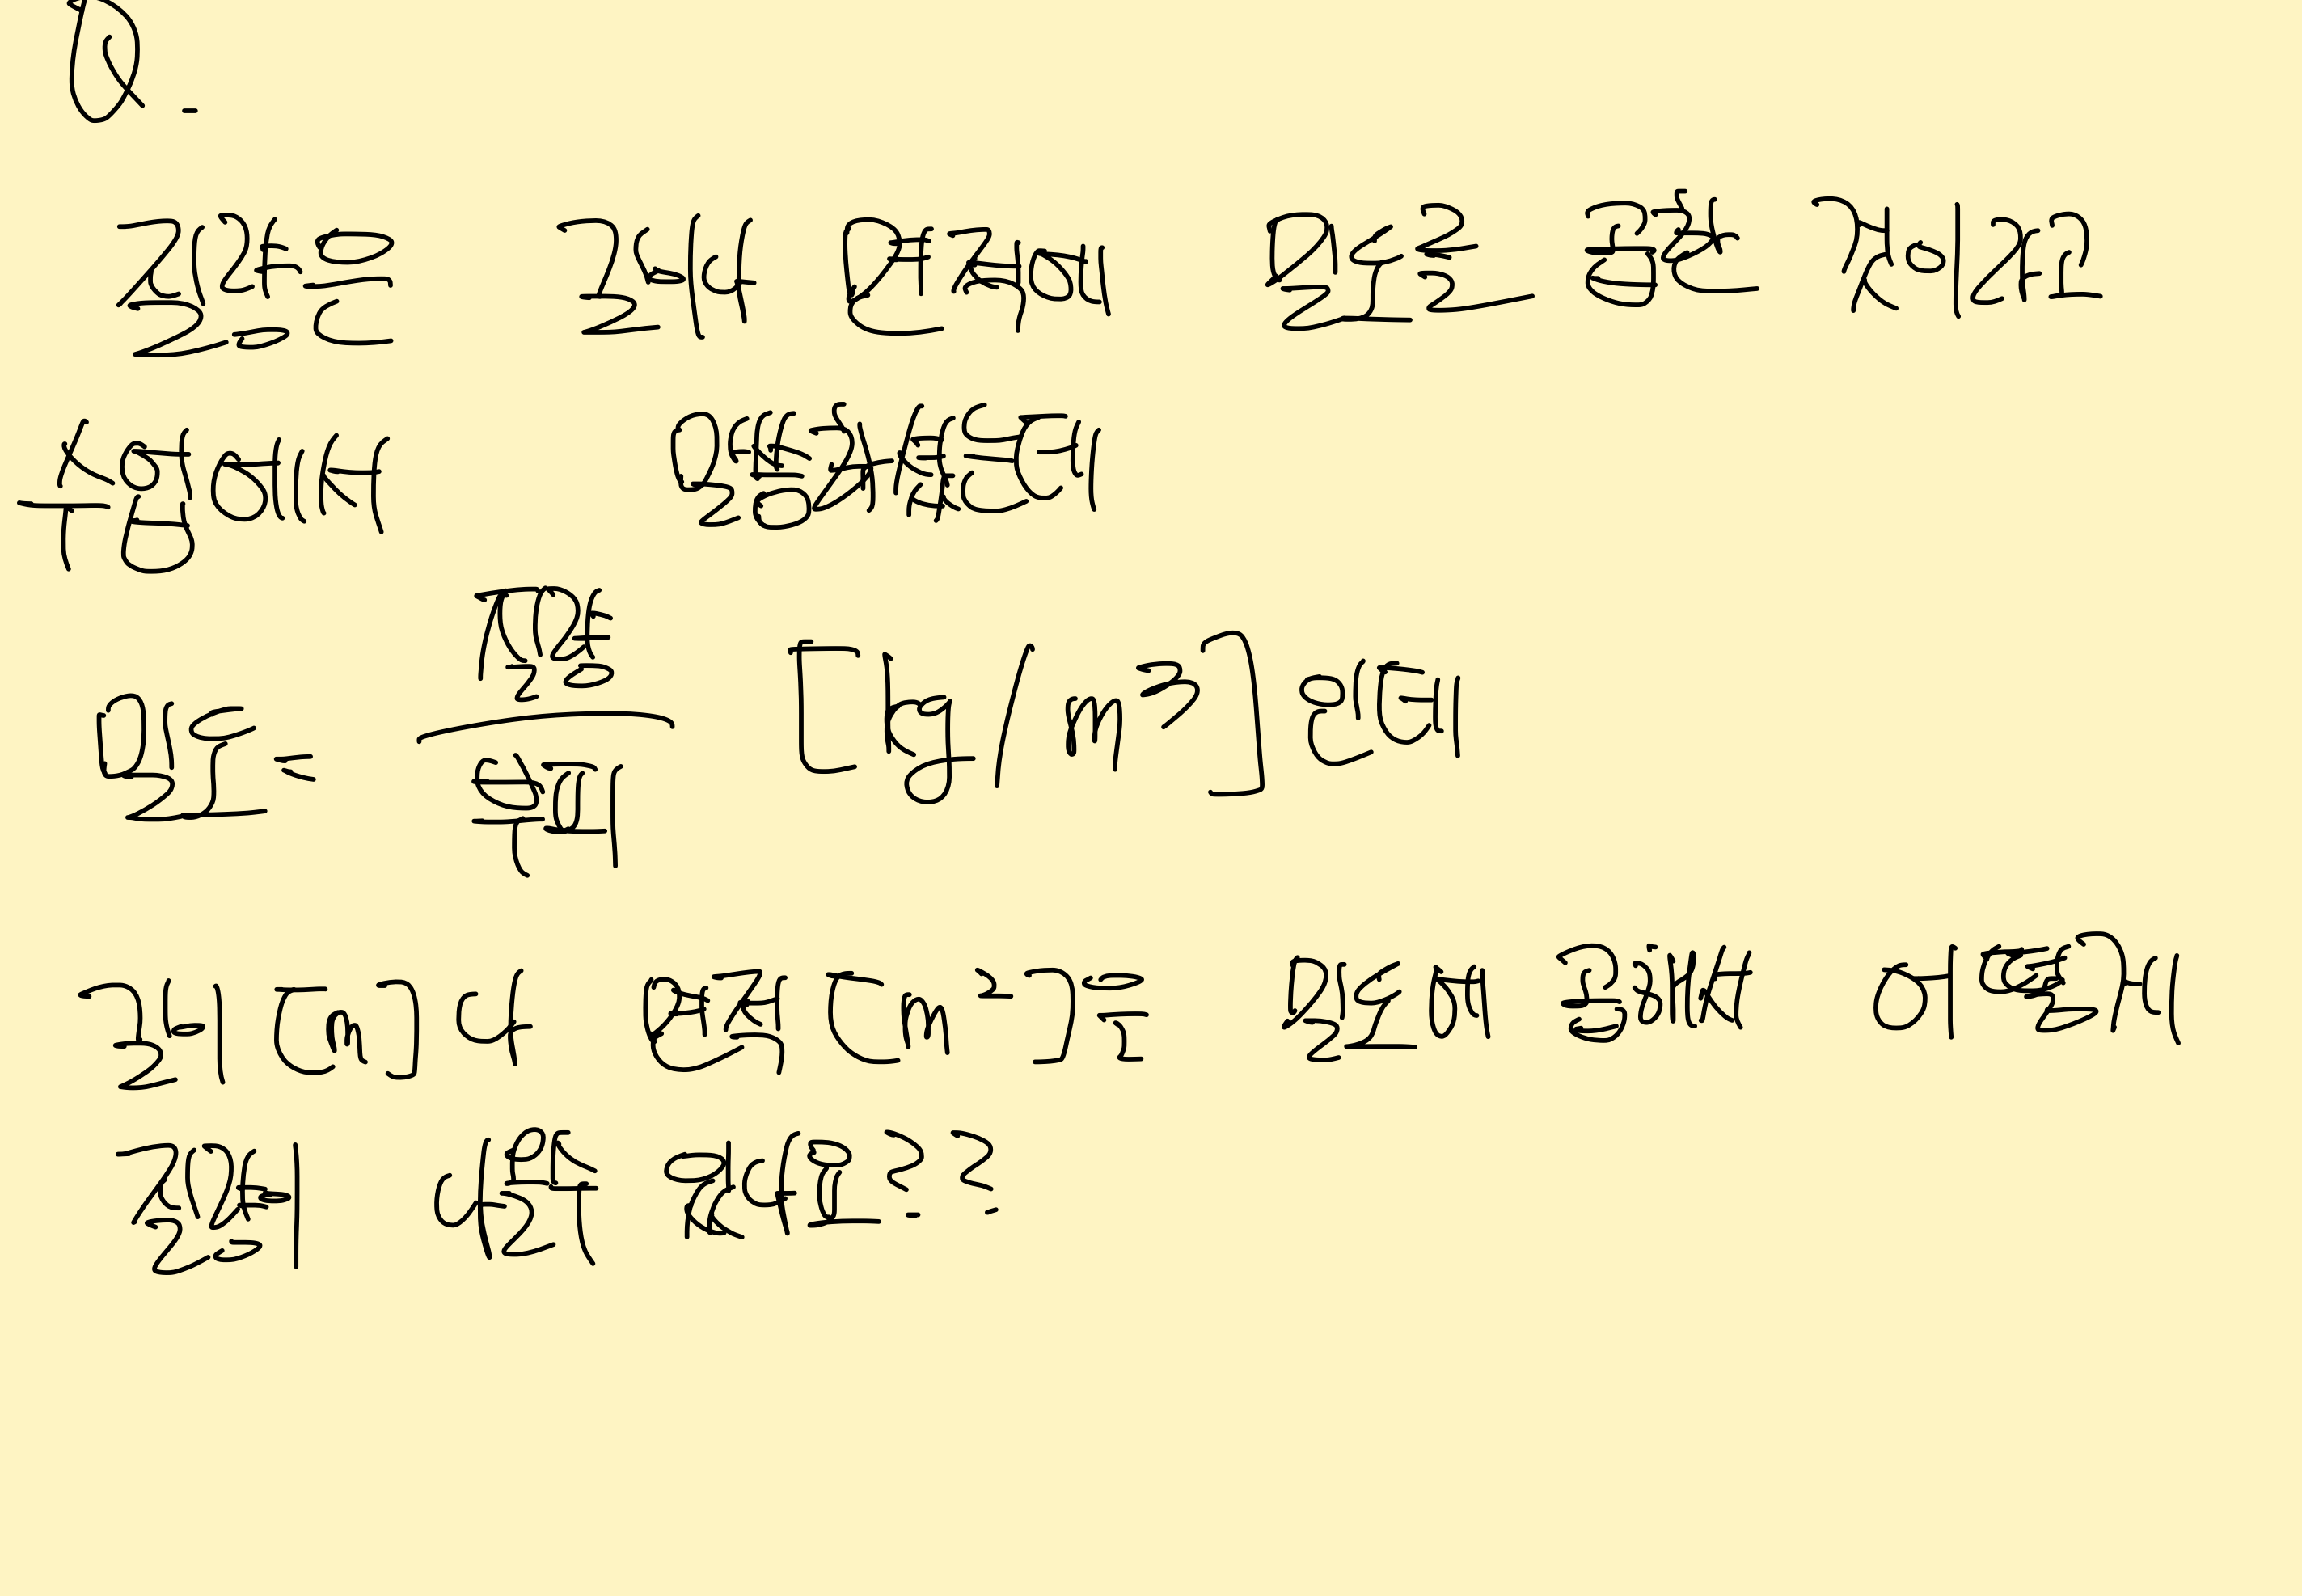 Q.
질량은 길이나 면적에 밀도를 곱한 것이라고
수업에서 말씀하셨는데
밀도 = 질량/부피 [kg/m³] 인데
길이 [m] 나 면적 [m²] 로 밀도에 곱해서 어떻게
질량이 나올수 있나요??